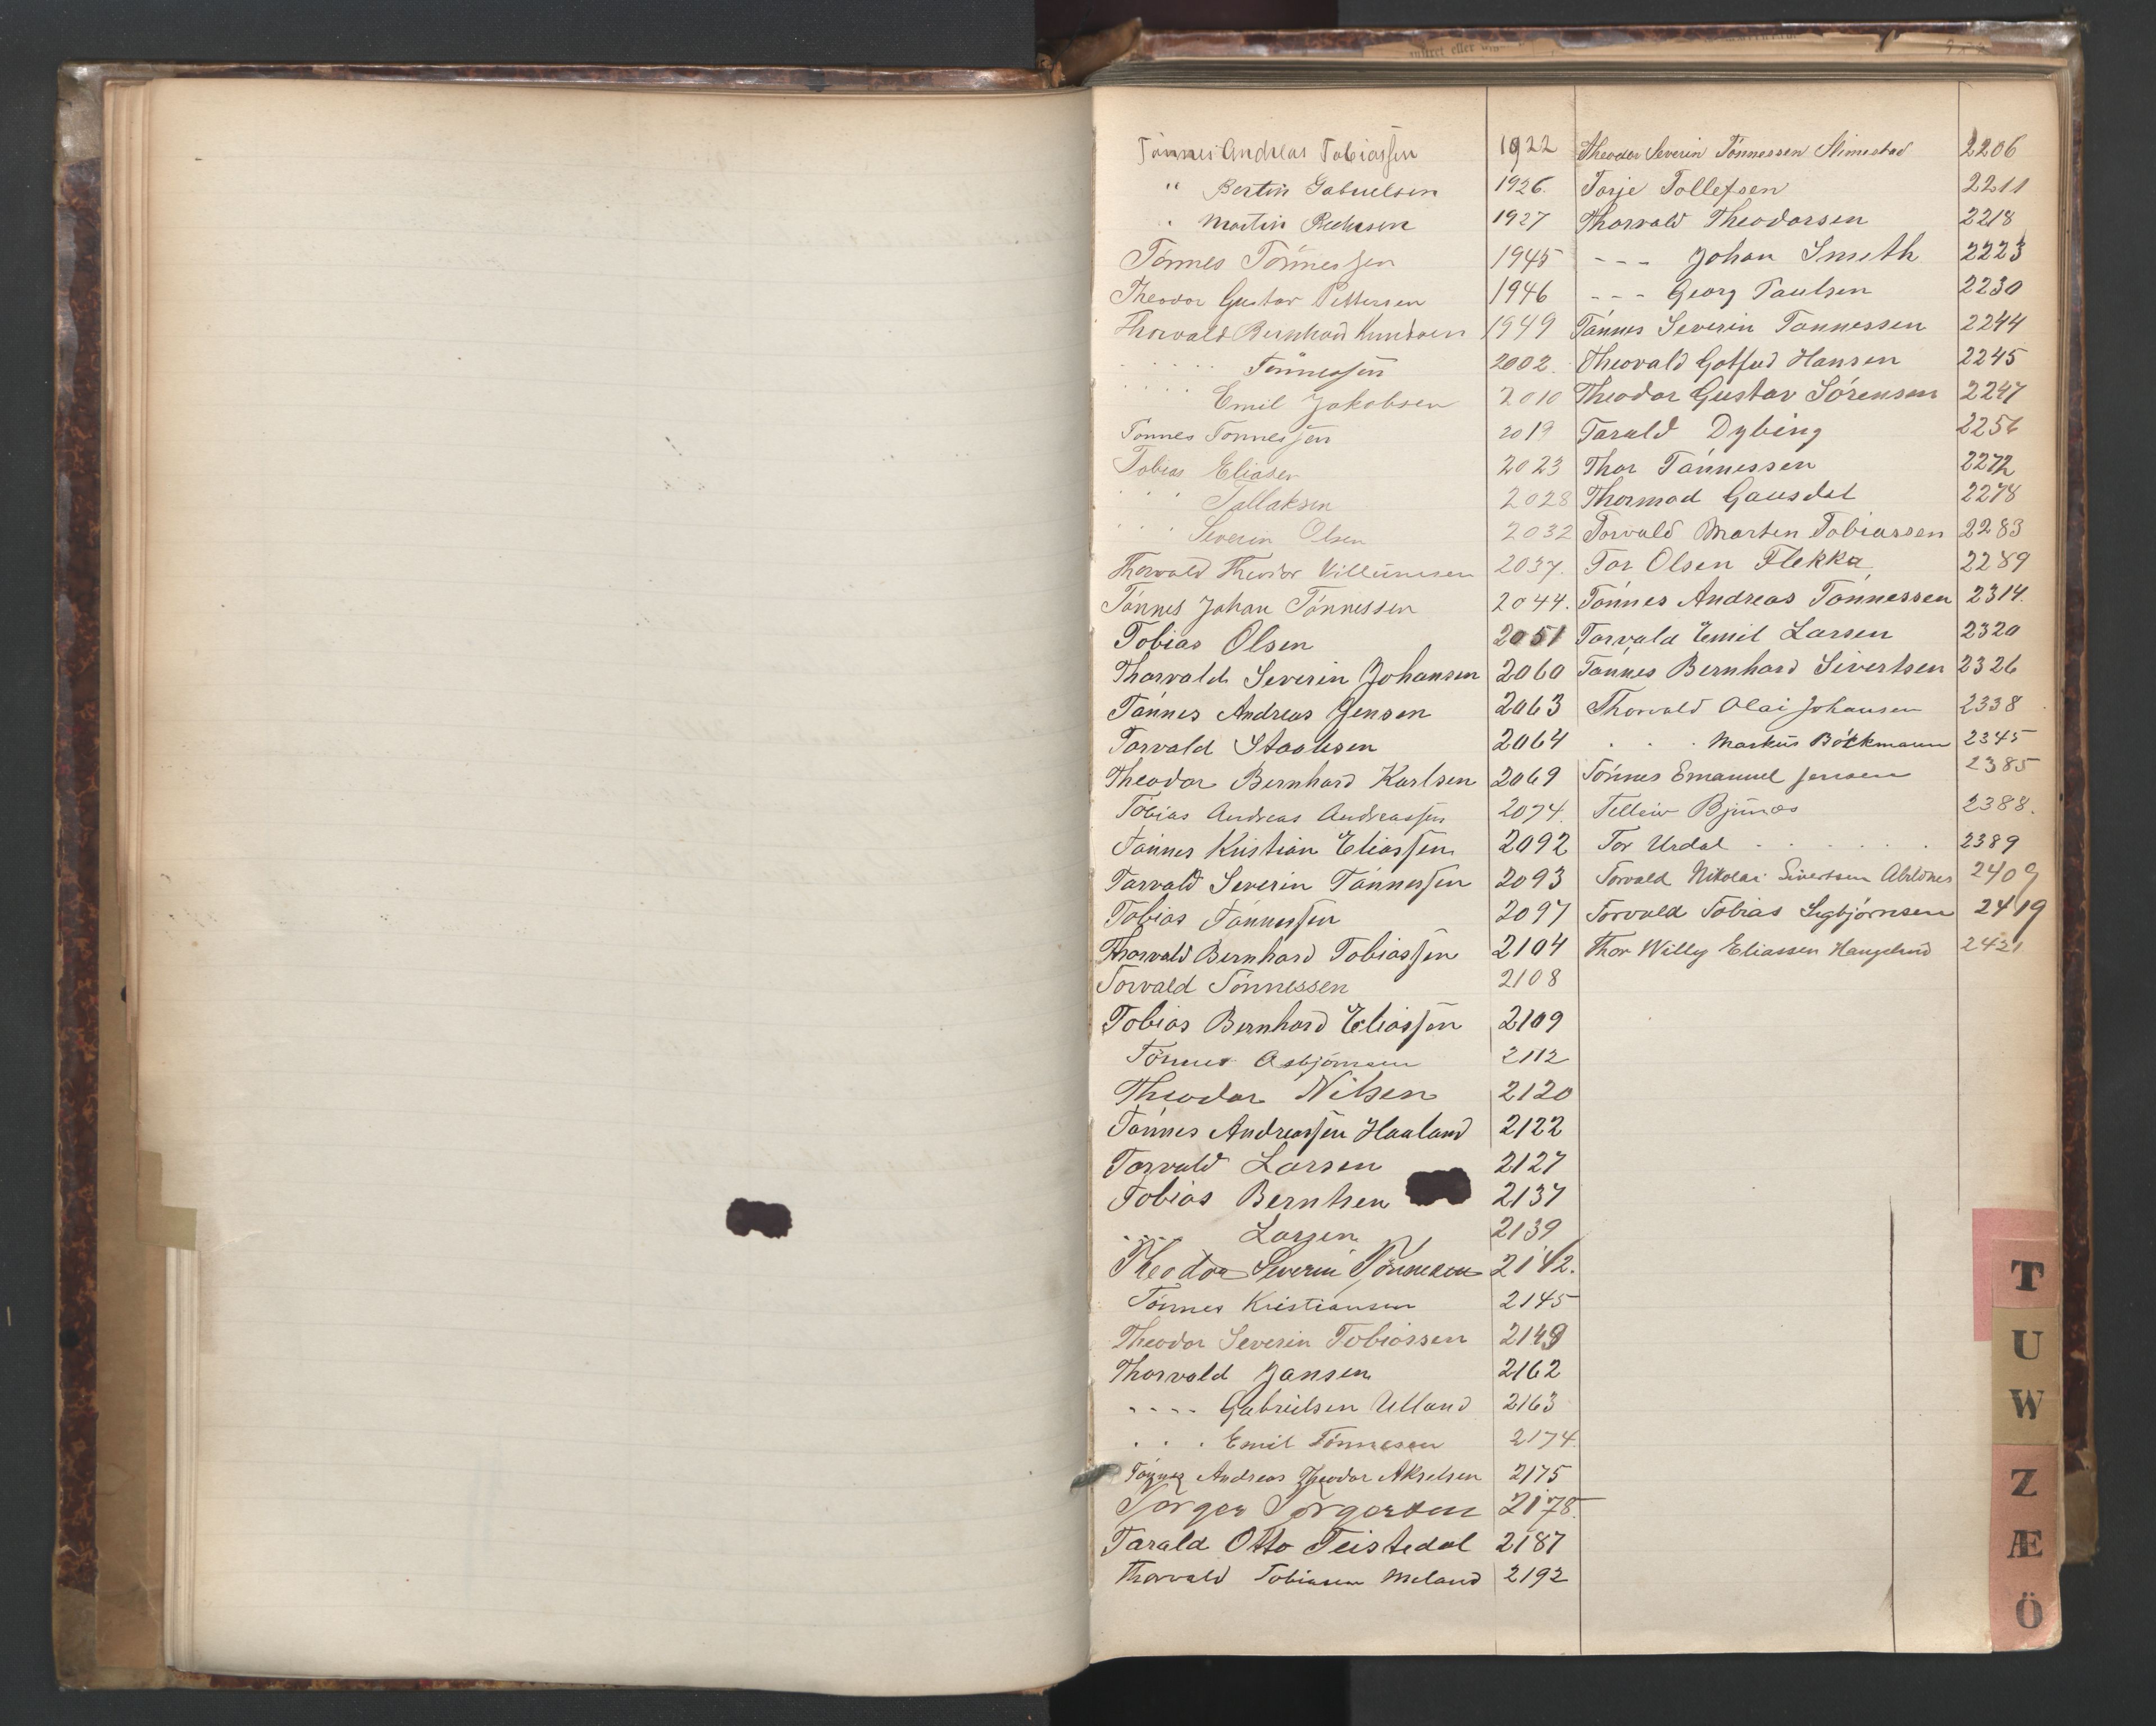 Tönnes Andreas Tobiassen 1922
" Bertin Gabrielsen 1926.
" Martin Pedersen 1927
Tönnes Tönnessen 1945
Theodor Gustav Pettersen 1946
Thorvald Bernhard Knudsen 1949
. . . . . Tönnessen 2002.
. . . . Emil Jakobsen 2010
Tönnes Tönnessen 2019
Tobias Eliasen 2023
. . . Tallaksen 2028
. . . Severin Olsen 2032
Thorvald Theodor Villumsen 2037.
Tönnes Johan Tönnessen 2044.
Tobias Olsen 2051
Thorvald Severin Johansen 2060
Tönnes Andreas Jensen 2063
Torvald Staalesen 2064
Theodor Bernhard Karlsen 2069
Tobias Andreas Andreassen 2074.
Tönnes Kristian Eliassen 2092
Torvald Severin Tönnessen 2093
Tobias Tönnessen 2097
Thorvald Bernhard Tobiassen 2104
Torvald Tönnessen 2108
Tobias Bernhard Eliassen 2109
Tönnes Asbjörnsen 2112
Theodor Nilsen 2120
Tönnes Andreassen Haaland 2122
Torvald Larsen 2127
Tobias Berntsen 2137
- - - Larsen 2139
Theodor Severin Tönnesen 2142.
Tönnes Kristiansen 2145
Theodor Severin Tobiassen 2149
Thorvald Jansen 2162
- - - - Gabrielsen Ulland 2163
. . . Emil Tönnesen 2174.
Tönnes Andreas Theodor Akselsen 2175
Torger Torgersen 2178.
Tarald Otto Teistedal 2187
Thorvald Tobiasen Meland 2192
Theodor Severin Tönnessen Slimestad 2206
Torje Tollefsen 2211
Thorvald Theodorsen 2218
- - - Johan Smith 2223
- - - Georg Paulsen 2230
Tönnes Severin Tönnessen 2244
Thorvald Gotfred Hansen 2245
Theodor Gustav Sörensen 2247
Tarald Dybing 2256
Thor Tönnessen 2272
Thormod Gausdal 2278
Torvald Marten Tobiassen 2283
Tor Olsen Flekka 2289
Tönnes Andreas Tönnessen 2314.
Torvald Emil Larsen 2320
Tönnes Bernhard Sivertsen 2326
Thorvald Olai Johansen 2338
. . . Markus Böckmann 2345
Tönnes Emanuel Jensen 2385
Tellew 2388.
Tor Urdal . . . . . . 2389
Torvald Nikolai Sivertsen 2409
Torvald Tobias Sigbjörnsen 2419
Thor Willy Eliassen Haugelund 2421
T
U
W
Z
Æ
Ö